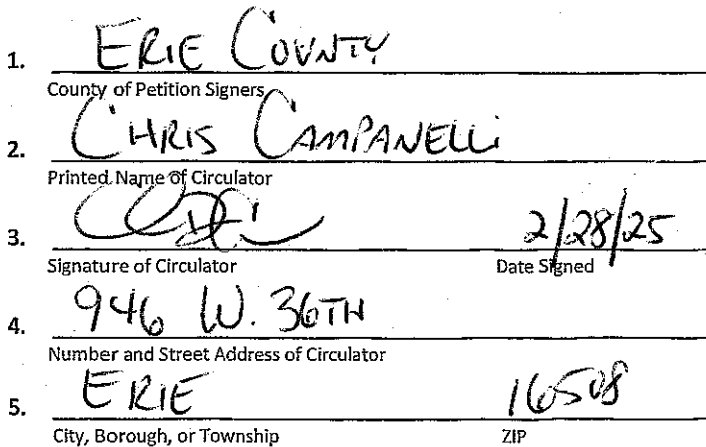 1. ERIE COUNTY
County of Petition Signers
2. CHRIS CAMPANELLI
Printed Name of Circulator
3. 2/28/25
Signature of Circulator Date Signed
4. 946 W. 36TH
Number and Street Address of Circulator
5. ERIE 16508
City, Borough, or Township ZIP